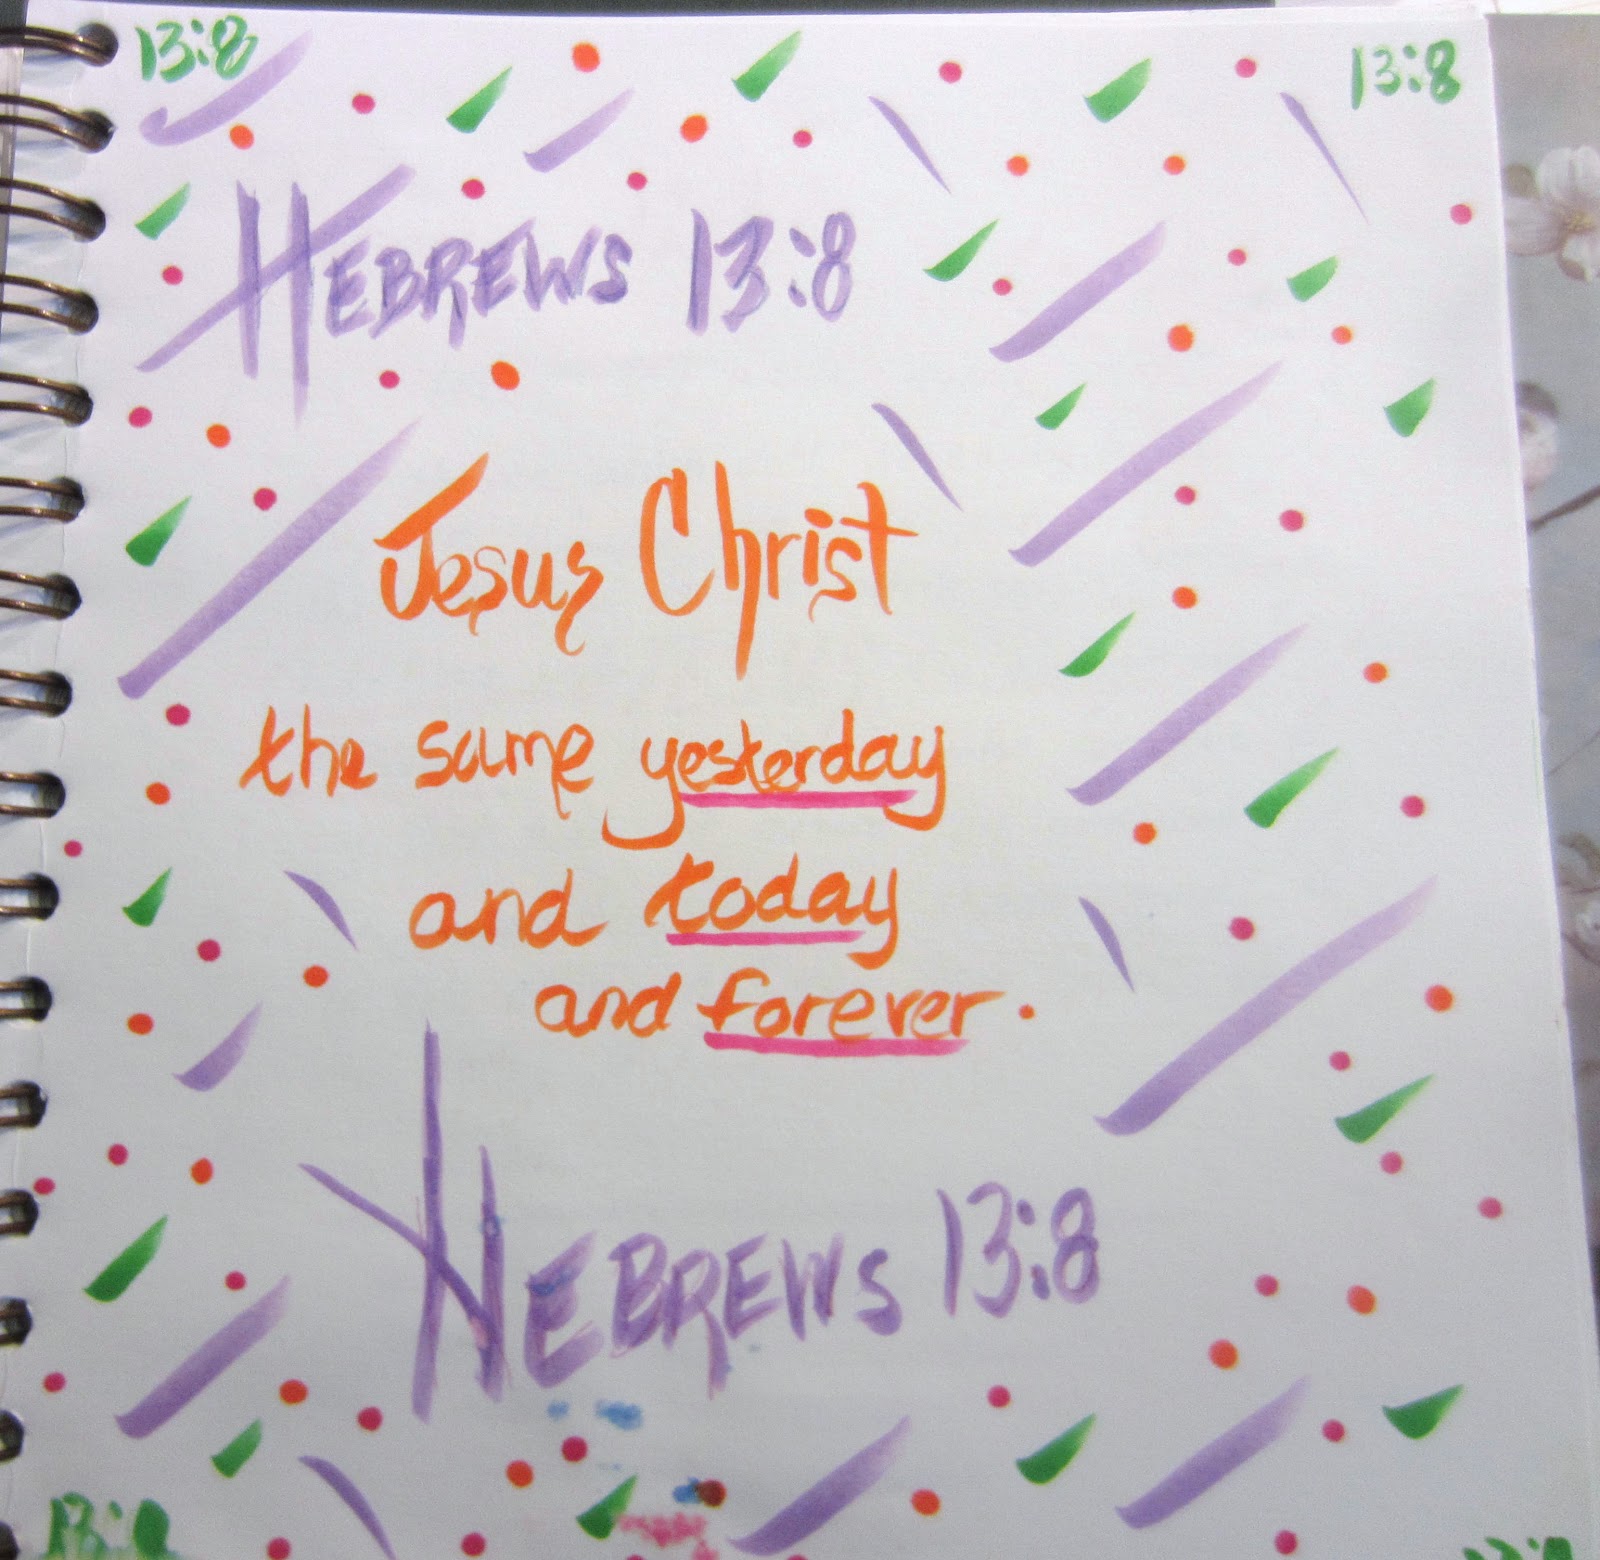 13:8 13:8
HEBREWS 13:8
Jesus Christ
the same yesterday
and today
and forever.
HEBREWS 13:8
13:8 13:8